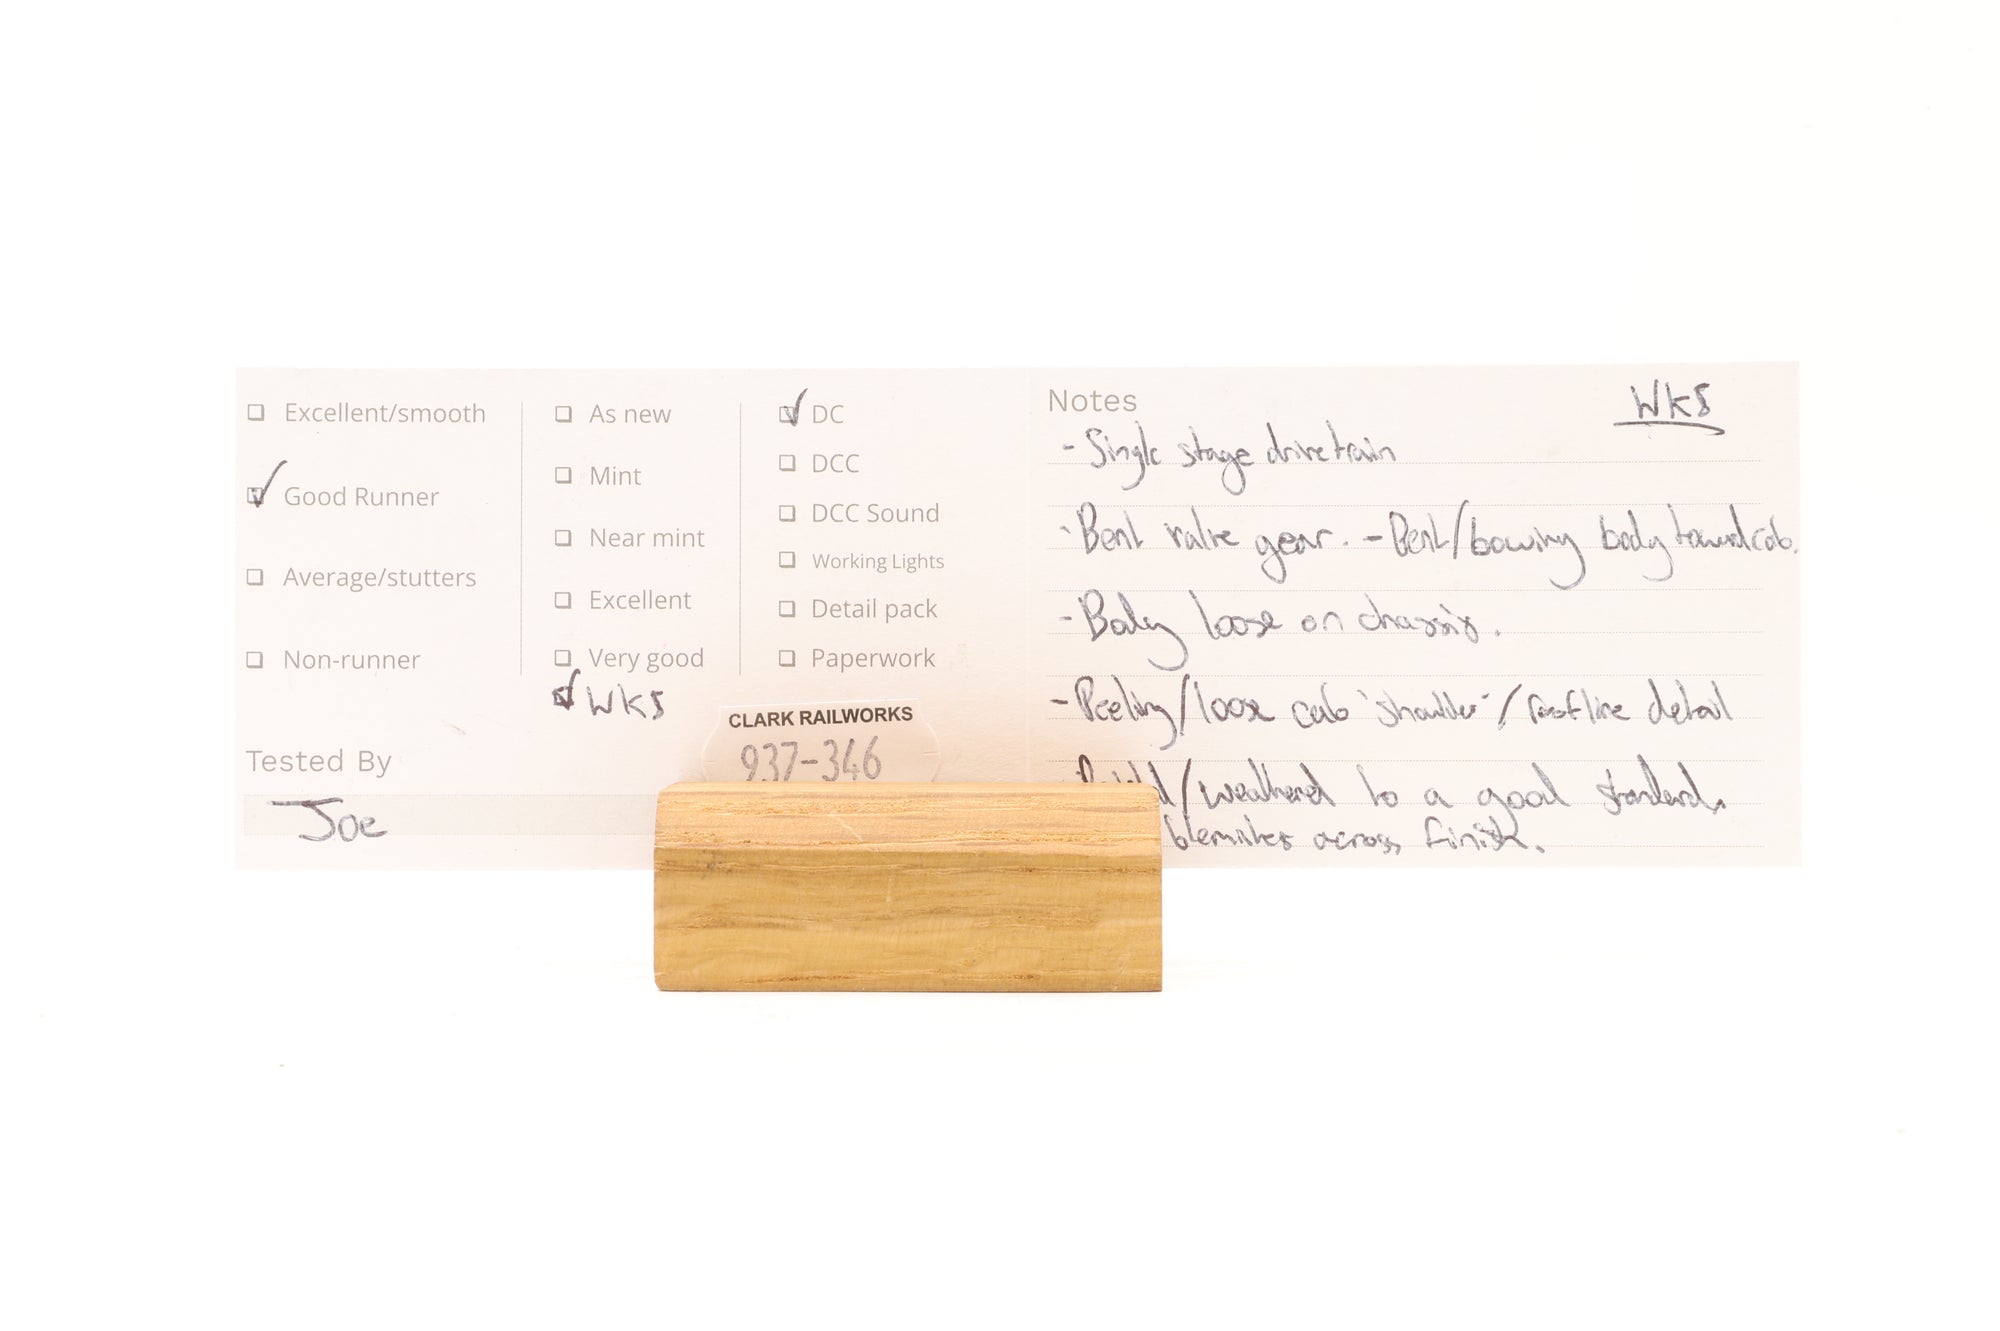 Excellent/smooth
Good Runner
Average/stutters
Non-runner
As new
Mint
Near mint
Excellent
Very good
WKS
DC
DCC
DCC Sound
Working Lights
Detail pack
Paperwork
Tested By
Joe
CLARK RAILWORKS
937-346
Notes
WKS
- Single stage drivetrain
- Bent valve gear. - Bent/bowing body toward cab.
- Body loose on chassis.
- Peeling/loose cab 'shoulder'/roofline detail
/weathered to a good standard,
blemishes across finish.